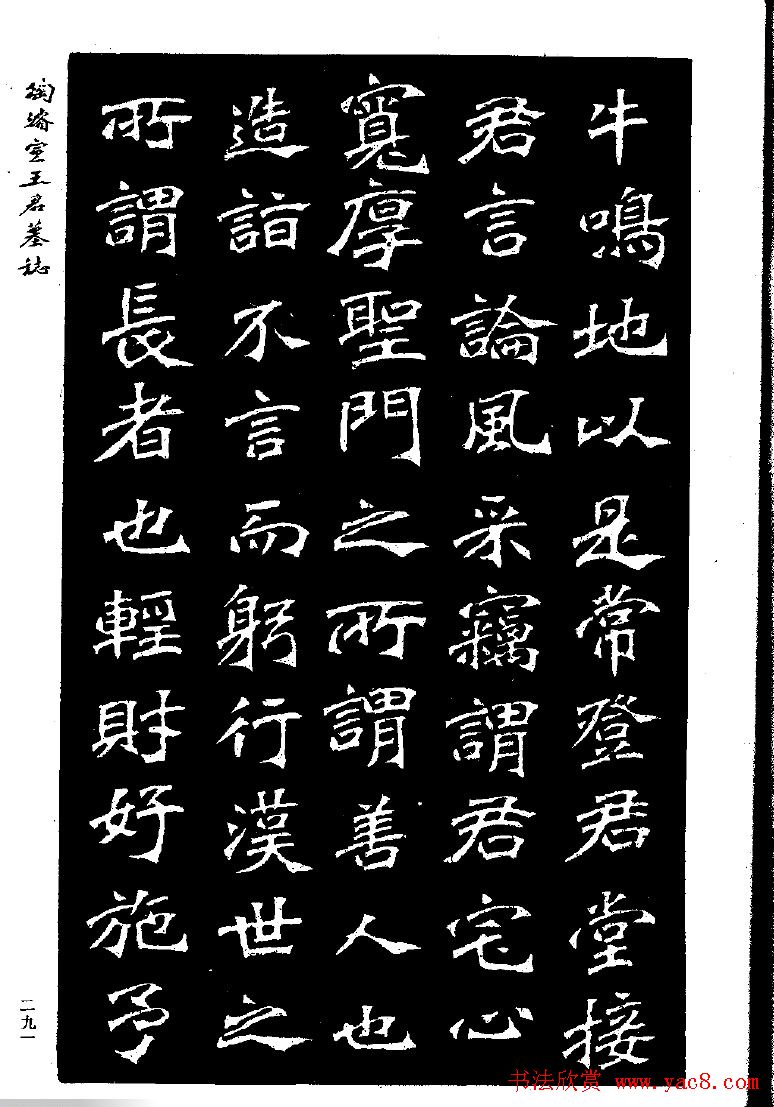 牛鳴地以是常登君堂接
君言論風采竊謂君宅心
寬厚聖門之所謂善人也
造詣不言而躬行漢世之
所謂長者也輕財好施予
陶濬宣王君墓誌
二九一
书法欣赏 www.yac8.com